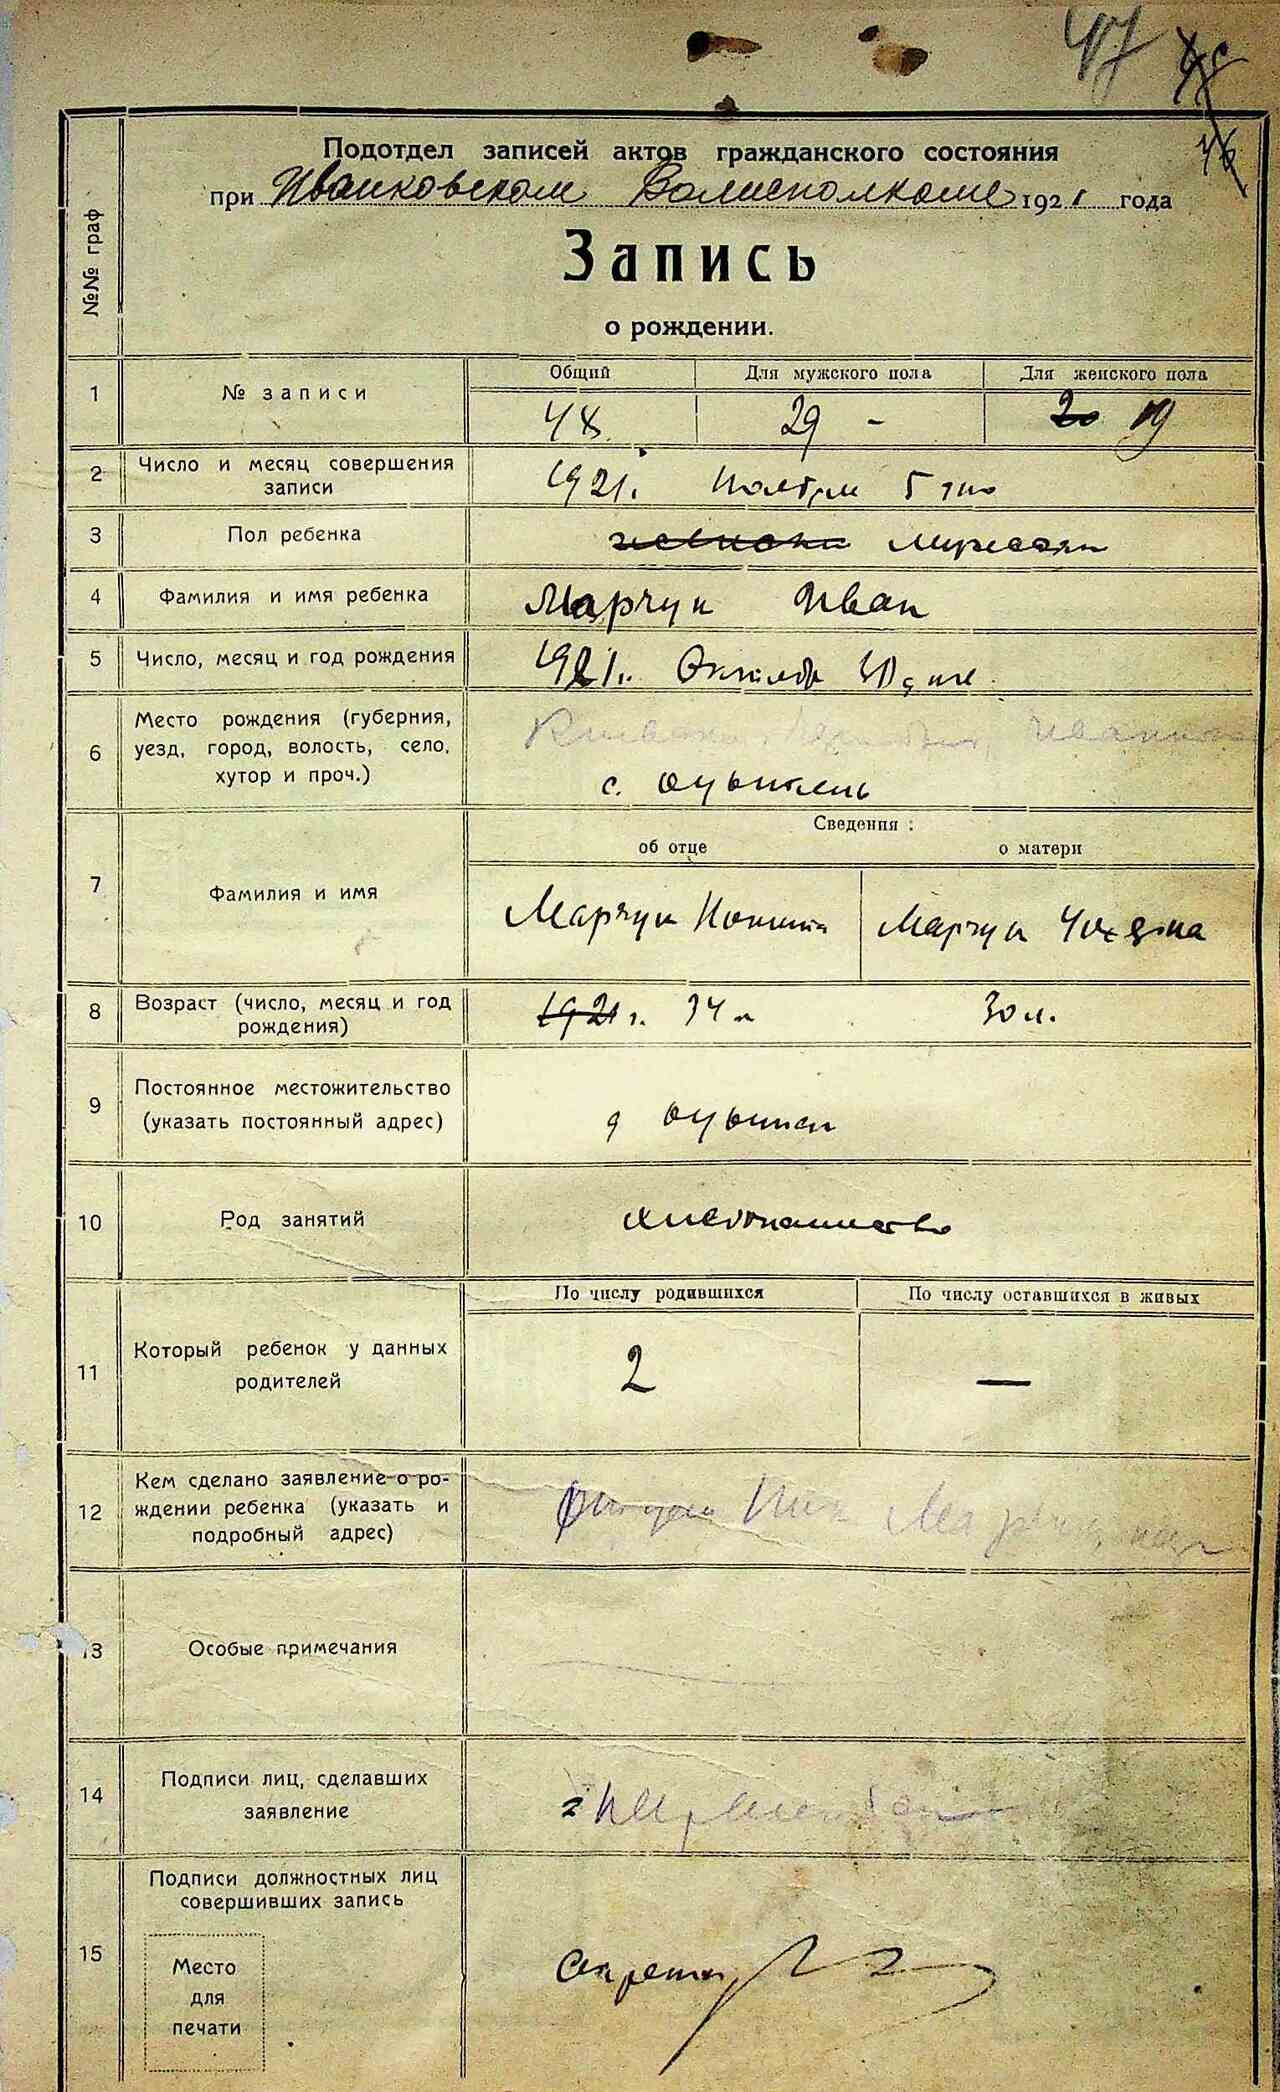 47
№№ граф
Подотдел записей актов гражданского состояния
при Иванковском Волисполкоме 1921 года
Запись
о рождении.
1 № записи
Общий Для мужского пола Для женского пола
48 29 - 20 19
2 Число и месяц совершения
записи
1921. Ноября 5 дня
3 Пол ребенка мужеский
4 Фамилия и имя ребенка Марчук Иван
5 Число, месяц и год рождения 1921. Октября 30 дня
6 Место рождения (губерния,
уезд, город, волость, село,
хутор и проч.)
с.
Сведения :
об отце о матери
7 Фамилия и имя
Марчук Марчук
8 Возраст (число, месяц и год
рождения)
1921 г. 34 л 30 л.
9 Постоянное местожительство
(указать постоянный адрес)
10 Род занятий хлебопашество
11 Который ребенок у данных
родителей
По числу родившихся По числу оставшихся в живых
2 —
12 Кем сделано заявление о ро-
ждении ребенка (указать и
подробный адрес)
13 Особые примечания
14 Подписи лиц, сделавших
заявление
15 Подписи должностных лиц
совершивших запись
Место
для
печати
Секретарь